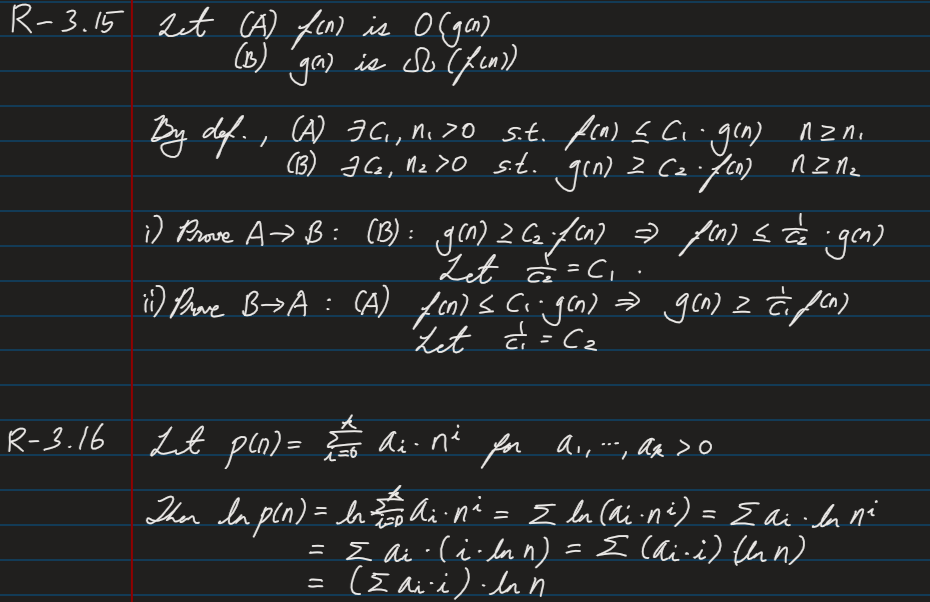 R-3.15 Let (A) f(n) is O(g(n)
(B) g(n) is Ω(f(n))
By def., (A) ∃C₁, n₁ > 0 s.t. f(n) ≤ C₁ · g(n) n ≥ n₁
(B) ∃C₂, n₂ > 0 s.t. g(n) ≥ C₂ · f(n) n ≥ n₂
i) Prove A → B : (B) : g(n) ≥ C₂ · f(n) ⇒ f(n) ≤ 1/C₂ · g(n)
Let 1/C₂ = C₁ .
ii) Prove B → A : (A) f(n) ≤ C₁ · g(n) ⇒ g(n) ≥ 1/C₁ f(n)
Let 1/C₁ = C₂
R-3.16 Let p(n) = Σ_{i=0}^{k} aᵢ · nⁱ for a₁, ..., aₖ > 0
Then ln p(n) = ln Σ_{i=0}^{k} aᵢ · nⁱ = Σ ln(aᵢ · nⁱ) = Σ aᵢ · ln nⁱ
= Σ aᵢ · (i · ln n) = Σ (aᵢ · i) (ln n)
= (Σ aᵢ · i) · ln n